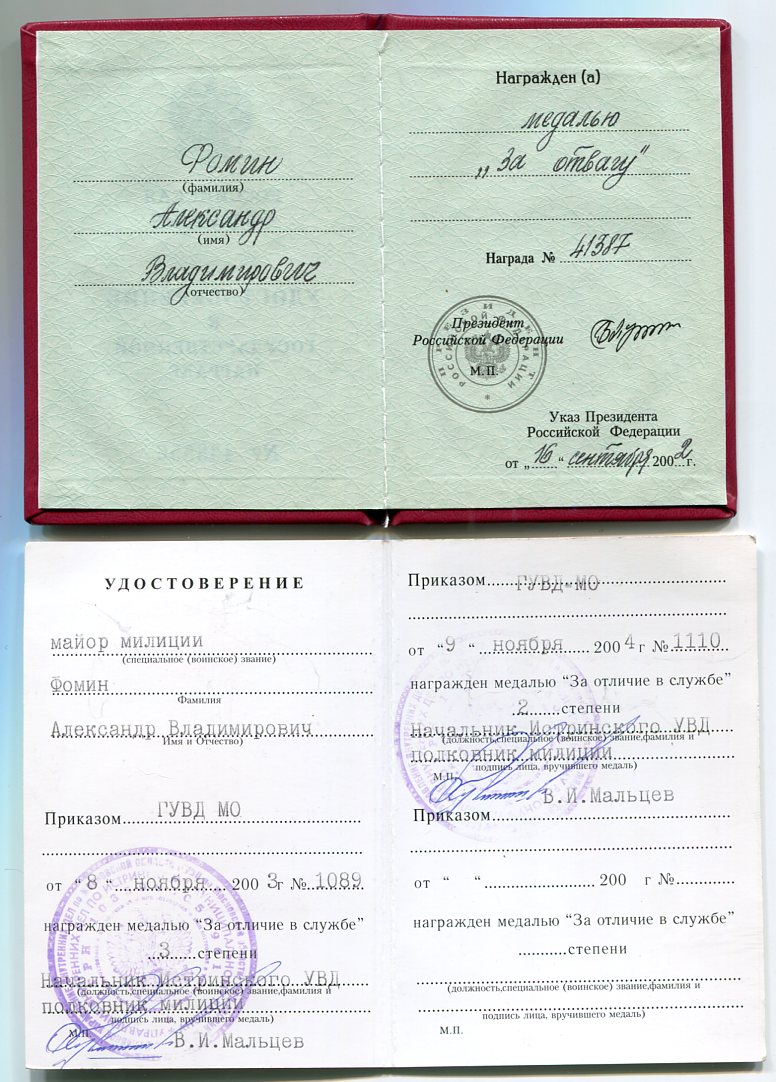 Фомин
(фамилия)
Александр
(имя)
Владимирович
(отчество)
Награжден (а)
медалью
„За отвагу"
Награда № 41387
Президент
Российской Федерации
М.П.
Указ Президента
Российской Федерации
от „16" сентября 2002 г.
УДОСТОВЕРЕНИЕ
майор милиции
(специальное (воинское) звание)
Фомин
Фамилия
Александр Владимирович
Имя и Отчество)
Приказом ГУВД МО
от "8" ноября 2003 г № 1089
награжден медалью “За отличие в службе”
3 степени
Начальник Истринского УВД
(должность,специальное (воинское) звание,фамилия и
полковник милиции
подпись лица, вручившего медаль)
М.П.
В.И.Мальцев
Приказом ГУВД МО
от “9“ ноября 2004 г № 1110
награжден медалью “За отличие в службе”
2 степени
Начальник Истринского УВД
(должность,специальное (воинское) звание,фамилия и
полковник милиции
подпись лица, вручившего медаль)
М.П.
В.И.Мальцев
Приказом
от “ “ 200 г №
награжден медалью “За отличие в службе”
степени
(должность,специальное (воинское) звание,фамилия и
подпись лица, вручившего медаль)
М.П.